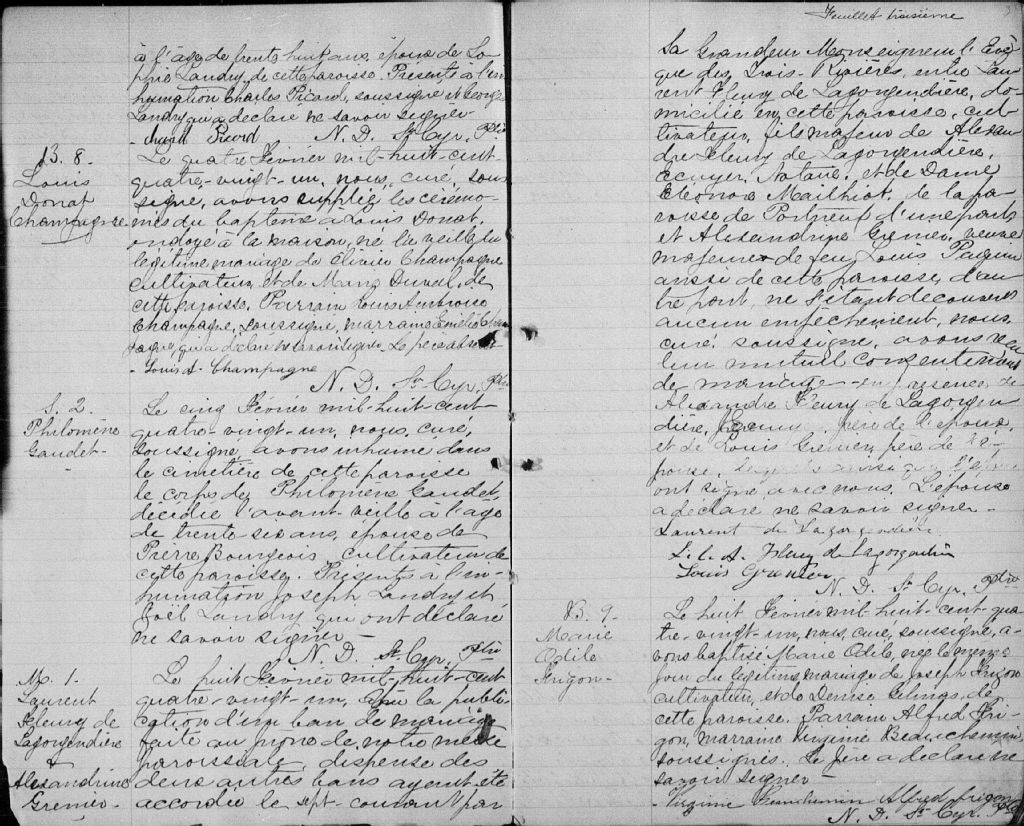 à l'âge de trente huit ans, épous de So-
phie Landry, de cette paroisse. Présents à l'in-
humation Charles Picard, soussigné et George
Landry qui a déclaré ne savoir signer
Picard N. D. St Cyr, Ptre
B. 8.
Louis
Donat
Champagne
Le quatre Février mil-huit-cent-
quatre-vingt-un, nous, curé, sous-
signé, avons suppliée les cérémo-
nies du baptême à Louis Donat,
ondoyé à la maison, né la veille du
légitime mariage de Olivier Champagne
cultivateur, et de Marie Duval, de
cette paroisse. Parrain Louis Ambroise
Champagne, soussigné, marraine Emélie Cham
pagne, qui a déclaré ne savoir signer. Le père absent
- Louis A- Champagne
N. D. St Cyr, Ptre
S. 2.
Philomène
Gaudet-
Le cinq Février mil-huit-cent
quatre-vingt-un, nous, curé,
soussigné, avons inhumé dans
le cimetière de cette paroisse
le corps de Philomène Gaudet,
décédée l'avant-veille à l'age
de trente-six ans, épouse de
Pierre Bourgeois, cultivateur de
cette paroisse. Présents à l'in-
humation Joseph Landry et
Joël Landry qui ont déclaré
ne savoir signer -
N. D. St Cyr, Ptre
M. 1.
Laurent
Fleury de
Lagorgendière
&
Alexandrine
Grenier-
Le huit Février mil-huit-cent
quatre-vingt-un, vu la publi-
cation d'un ban de mariage
faite au prône de notre messe
paroissiale, dispense des
deux autres bans ayant été
accordée le sept-courant par
Feuillet troisième
Sa Grandeur Monseigneur l'Evê-
que des Trois-Rivières, entre Lau-
rent Fleury de Lagorgendière, do-
micilié en cette paroisse, cul-
tivateur, fils majeur de Alexan-
dre Fleury de Lagorgendière,
Ecuyer, Notaire, et de Dame
Eléonore Mailhiot, de la pa-
roisse de Portneuf d'une part;
et Alexandrine Grenier, veuve
majeure de feu Louis Paquin
aussi de cette paroisse, d'au-
tre part, ne s'étant découvert
aucun empêchement, nous,
curé soussigné, avons reçu
leur mutuel consentement
de mariage en présence de
Alexandre Fleury de Lagorgen
dière, père de l'époux,
et de Louis Grenier, père de l'é-
pouse, lesquels ainsi que l'époux
ont signé avec nous. L'épouse
a déclaré ne savoir signer -
Laurent de Lagorgendière
S. L. A. Fleury de Lagorgendière
Louis Grenier
N. D. St Cyr, Ptre
B. 9.
Marie
Odile
Frigon-
Le huit Février mil huit-cent-qua
tre-vingt-un, nous, curé, soussigné, a-
vons baptisé Marie Odile, née le même
jour du légitime mariage de Joseph Frigon
cultivateur, et de Denise Gélinas, de
cette paroisse. Parrain Alfred Fri-
gon, marraine Virginie Beauchemin,
soussignés. Le père a déclaré ne
savoir signer -
- Virginie Beauchemin Alfred frigon
N. D. St Cyr, Ptre